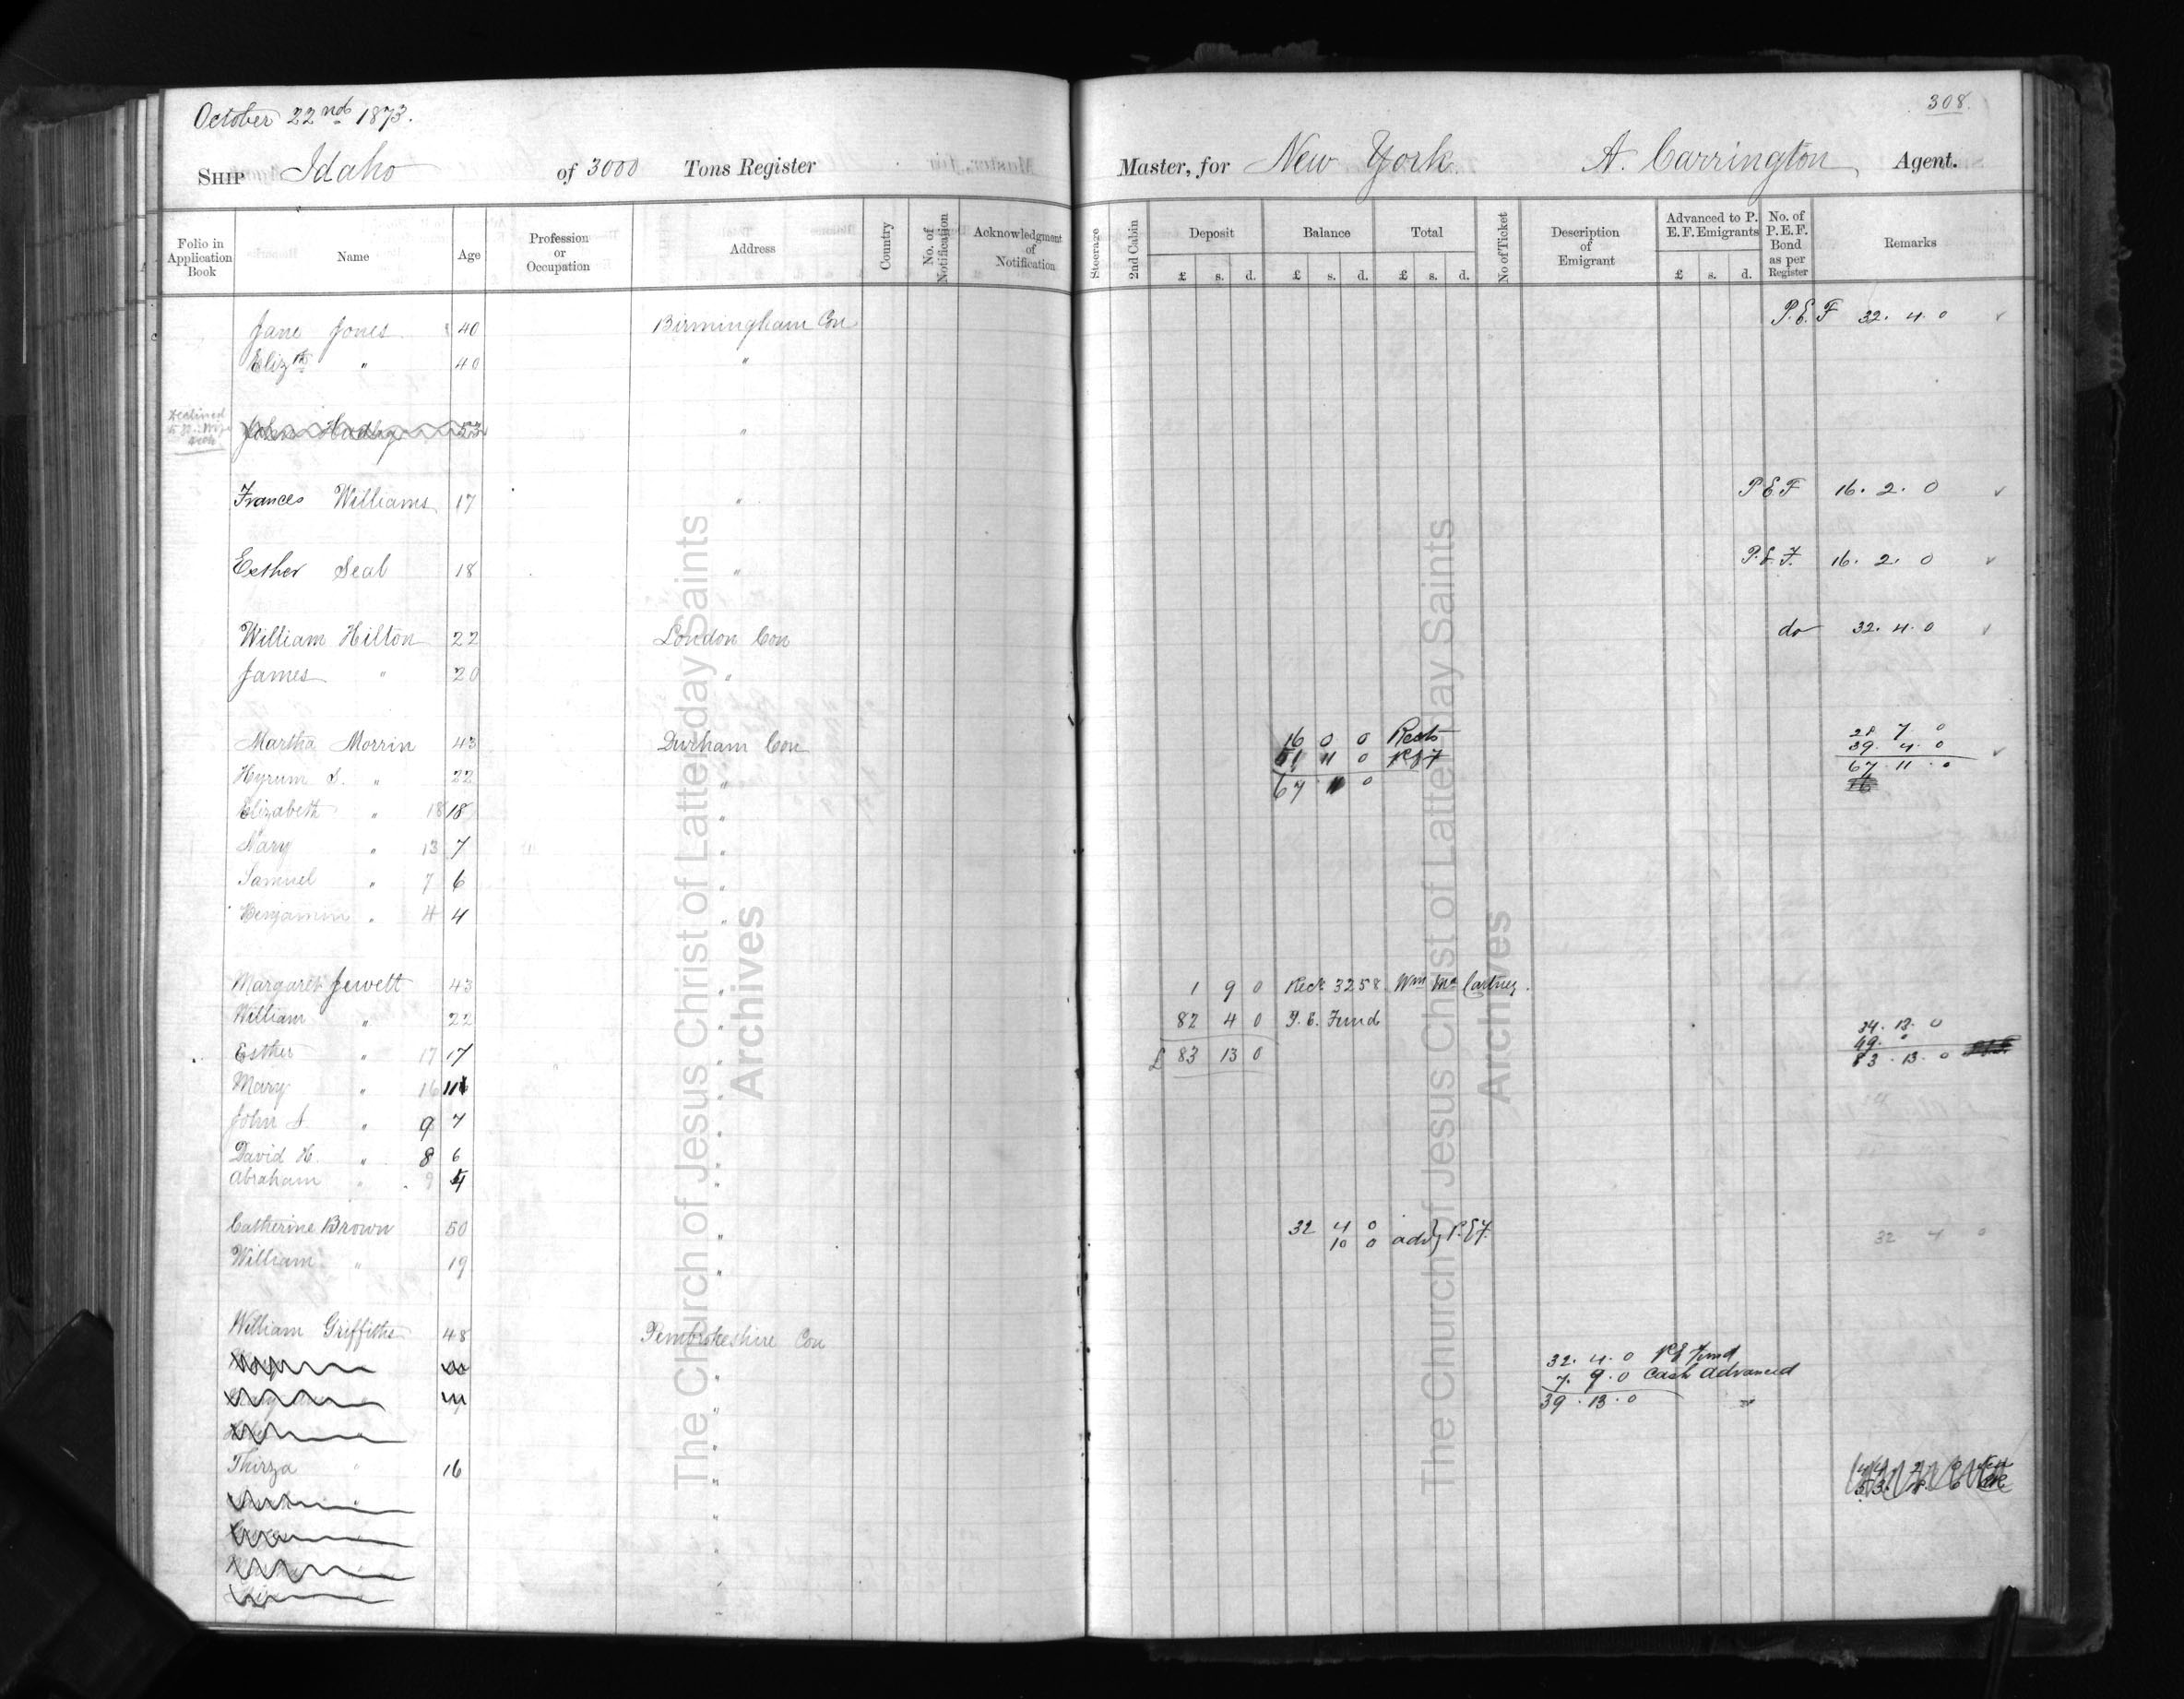 October 22nd 1873.
308.
Ship Idaho of 3000 Tons Register Master, for New York A. Carrington Agent.
Folio in Application Book Name Age Profession or Occupation Address Country No. of Notification Acknowledgment of Notification Steerage 2nd Cabin Deposit Balance Total No of Ticket Description of Emigrant Advanced to P. E. F. Emigrants No. of P. E. F. Bond as per Register Remarks
£ s. d. £ s. d. £ s. d. £ s. d.
Jane Jones 40 Birmingham Con P.E.F 32. 4. 0
Elizth " 40 "
John Hadley 53 "
Frances Williams 17 " P.E.F 16. 2. 0
Esther Seal 18 " P.E.F. 16. 2. 0
William Hilton 22 London Con do 32. 4. 0
James " 20 "
Martha Morrin 43 Durham Con 16 0 0 28 7 0
51 11 0 P.E.F 39. 4. 0
Hyrum S. " 22 " 67 11 0 67. 11. 0
Elizabeth " 18 18 "
Mary " 13 7 "
Samuel " 7 6 "
Benjamin " 4 4 "
Margaret Jewett 43 " 1 9 0 Rect 3258 Wm McCartney.
William " 22 " 82 4 0 P.E. Fund 34. 13. 0
49. 0
Esther " 17 17 " £ 83 13 0 83. 13. 0
Mary " 16 11 "
John S. " 9 7 "
David H. " 8 6 "
Abraham " 9 4 "
Catherine Brown 50 " 32 4 0 32 4 0
10 0 adv} P.E.F.
William " 19 "
William Griffiths 48 Pembrokeshire Con
" 32. 4. 0 P.E. Fund
" 7. 9. 0 Cash Advanced
39. 13. 0
"
Thirza " 16 "
"
"
"
"
The Church of Jesus Christ of Latter-day Saints
Archives
The Church of Jesus Christ of Latter-day Saints
Archives